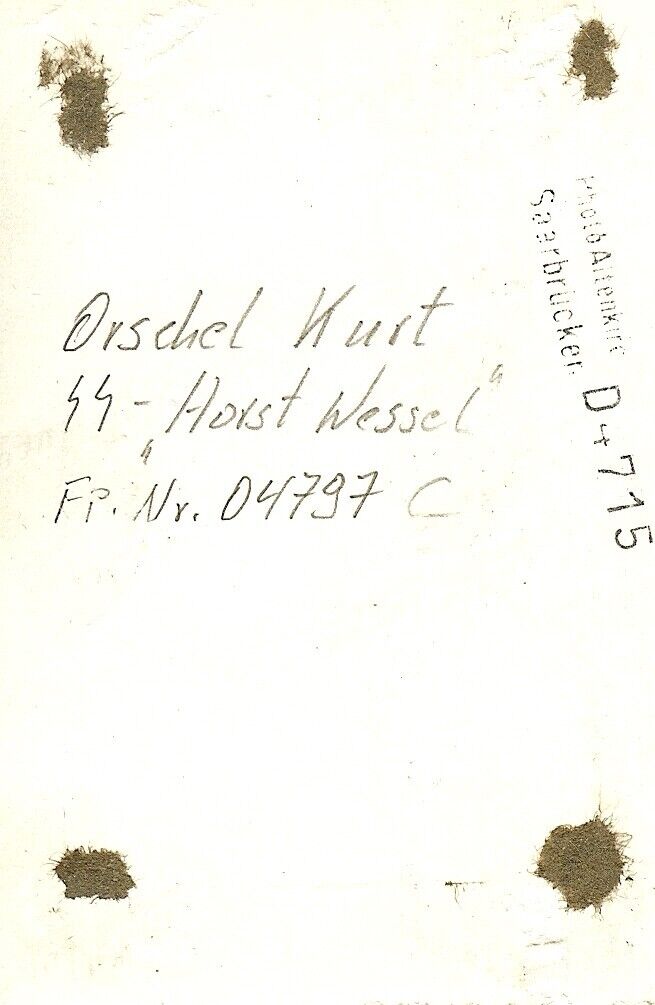 Orschel Kurt
SS - „Horst Wessel“
Fp. Nr. 04797 C
Photo
Saarbrücken
D 4715